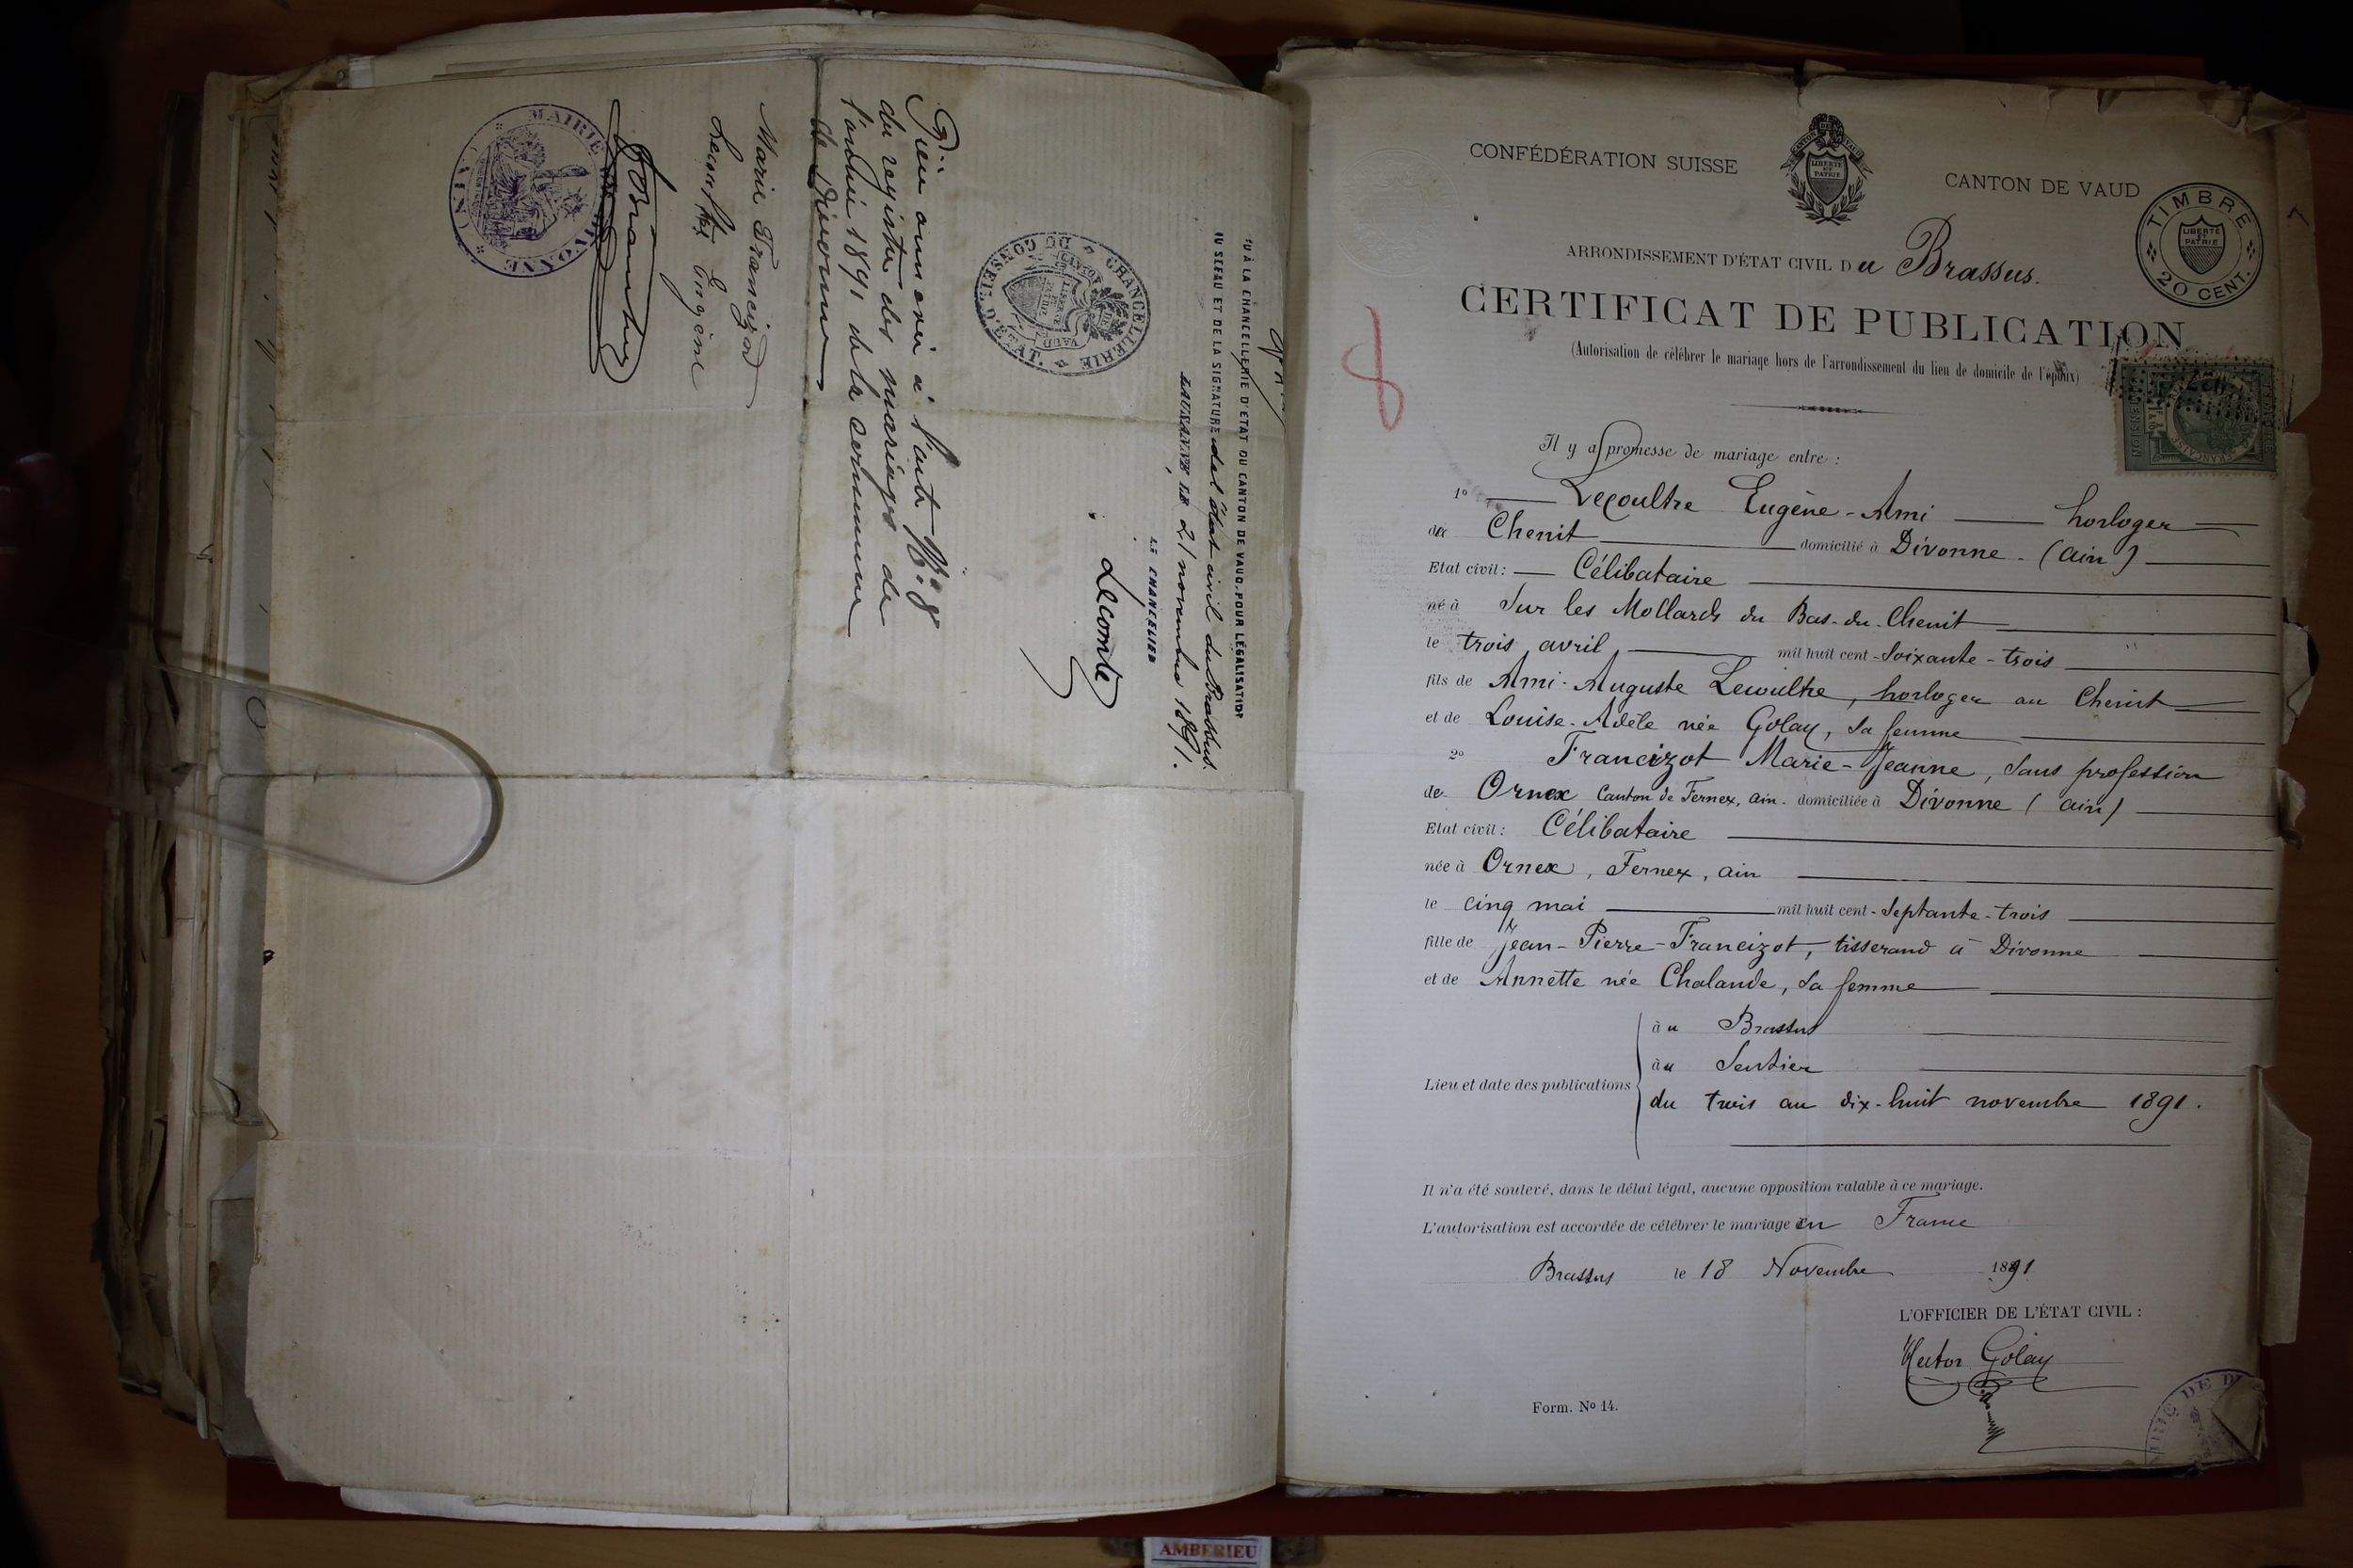 VU À LA CHANCELLERIE D'ÉTAT DU CANTON DE VAUD, POUR LÉGALISATION
DU SCEAU ET DE LA SIGNATURE de l'état civil du Brassus.
LAUSANNE, LE 21 novembre 1891.
LE CHANCELIER
Lecomte
CHANCELLERIE DU CONSEIL D'ÉTAT.
CANTON DE VAUD
LIBERTÉ ET PATRIE
Pièce annexée à l'acte N° 8
du registre des mariages de
l'année 1891 de la commune
de Divonne
Marie Francizod
Lecoultre Eugène
MAIRIE DIVONNE (AIN)
CONFÉDÉRATION SUISSE
CANTON DE VAUD
LIBERTÉ ET PATRIE
CANTON DE VAUD
TIMBRE
LIBERTÉ ET PATRIE
20 CENT.
ARRONDISSEMENT D'ÉTAT CIVIL Du Brassus.
CERTIFICAT DE PUBLICATION
(Autorisation de célébrer le mariage hors de l'arrondissement du lieu de domicile de l'époux)
8
Il y a promesse de mariage entre :
1° Lecoultre Eugène-Ami horloger
du Chenit domicilié à Divonne - (Ain)
Etat civil : Célibataire
né à Sur les Mollards du Bas-du-Chenit
le trois avril mil huit cent-soixante-trois
fils de Ami-Auguste Lecoultre, horloger au Chenit
et de Louise-Adèle née Golay, sa femme
2° Francizot Marie-Jeanne, sans profession
de Ornex Canton de Fernex, Ain. domiciliée à Divonne (Ain)
Etat civil : Célibataire
née à Ornex, Fernex, Ain
le cinq mai mil huit cent-septante-trois
fille de Jean-Pierre-Francizot, tisserand à Divonne
et de Annette née Chalande, sa femme
au Brassus
au Sentier
Lieu et date des publications
du trois au dix-huit novembre 1891.
Il n'a été soulevé, dans le délai légal, aucune opposition valable à ce mariage.
L'autorisation est accordée de célébrer le mariage en France
Brassus le 18 Novembre 1891
L'OFFICIER DE L'ÉTAT CIVIL :
Hector Golay
Form. N° 14.
AMBERIEU